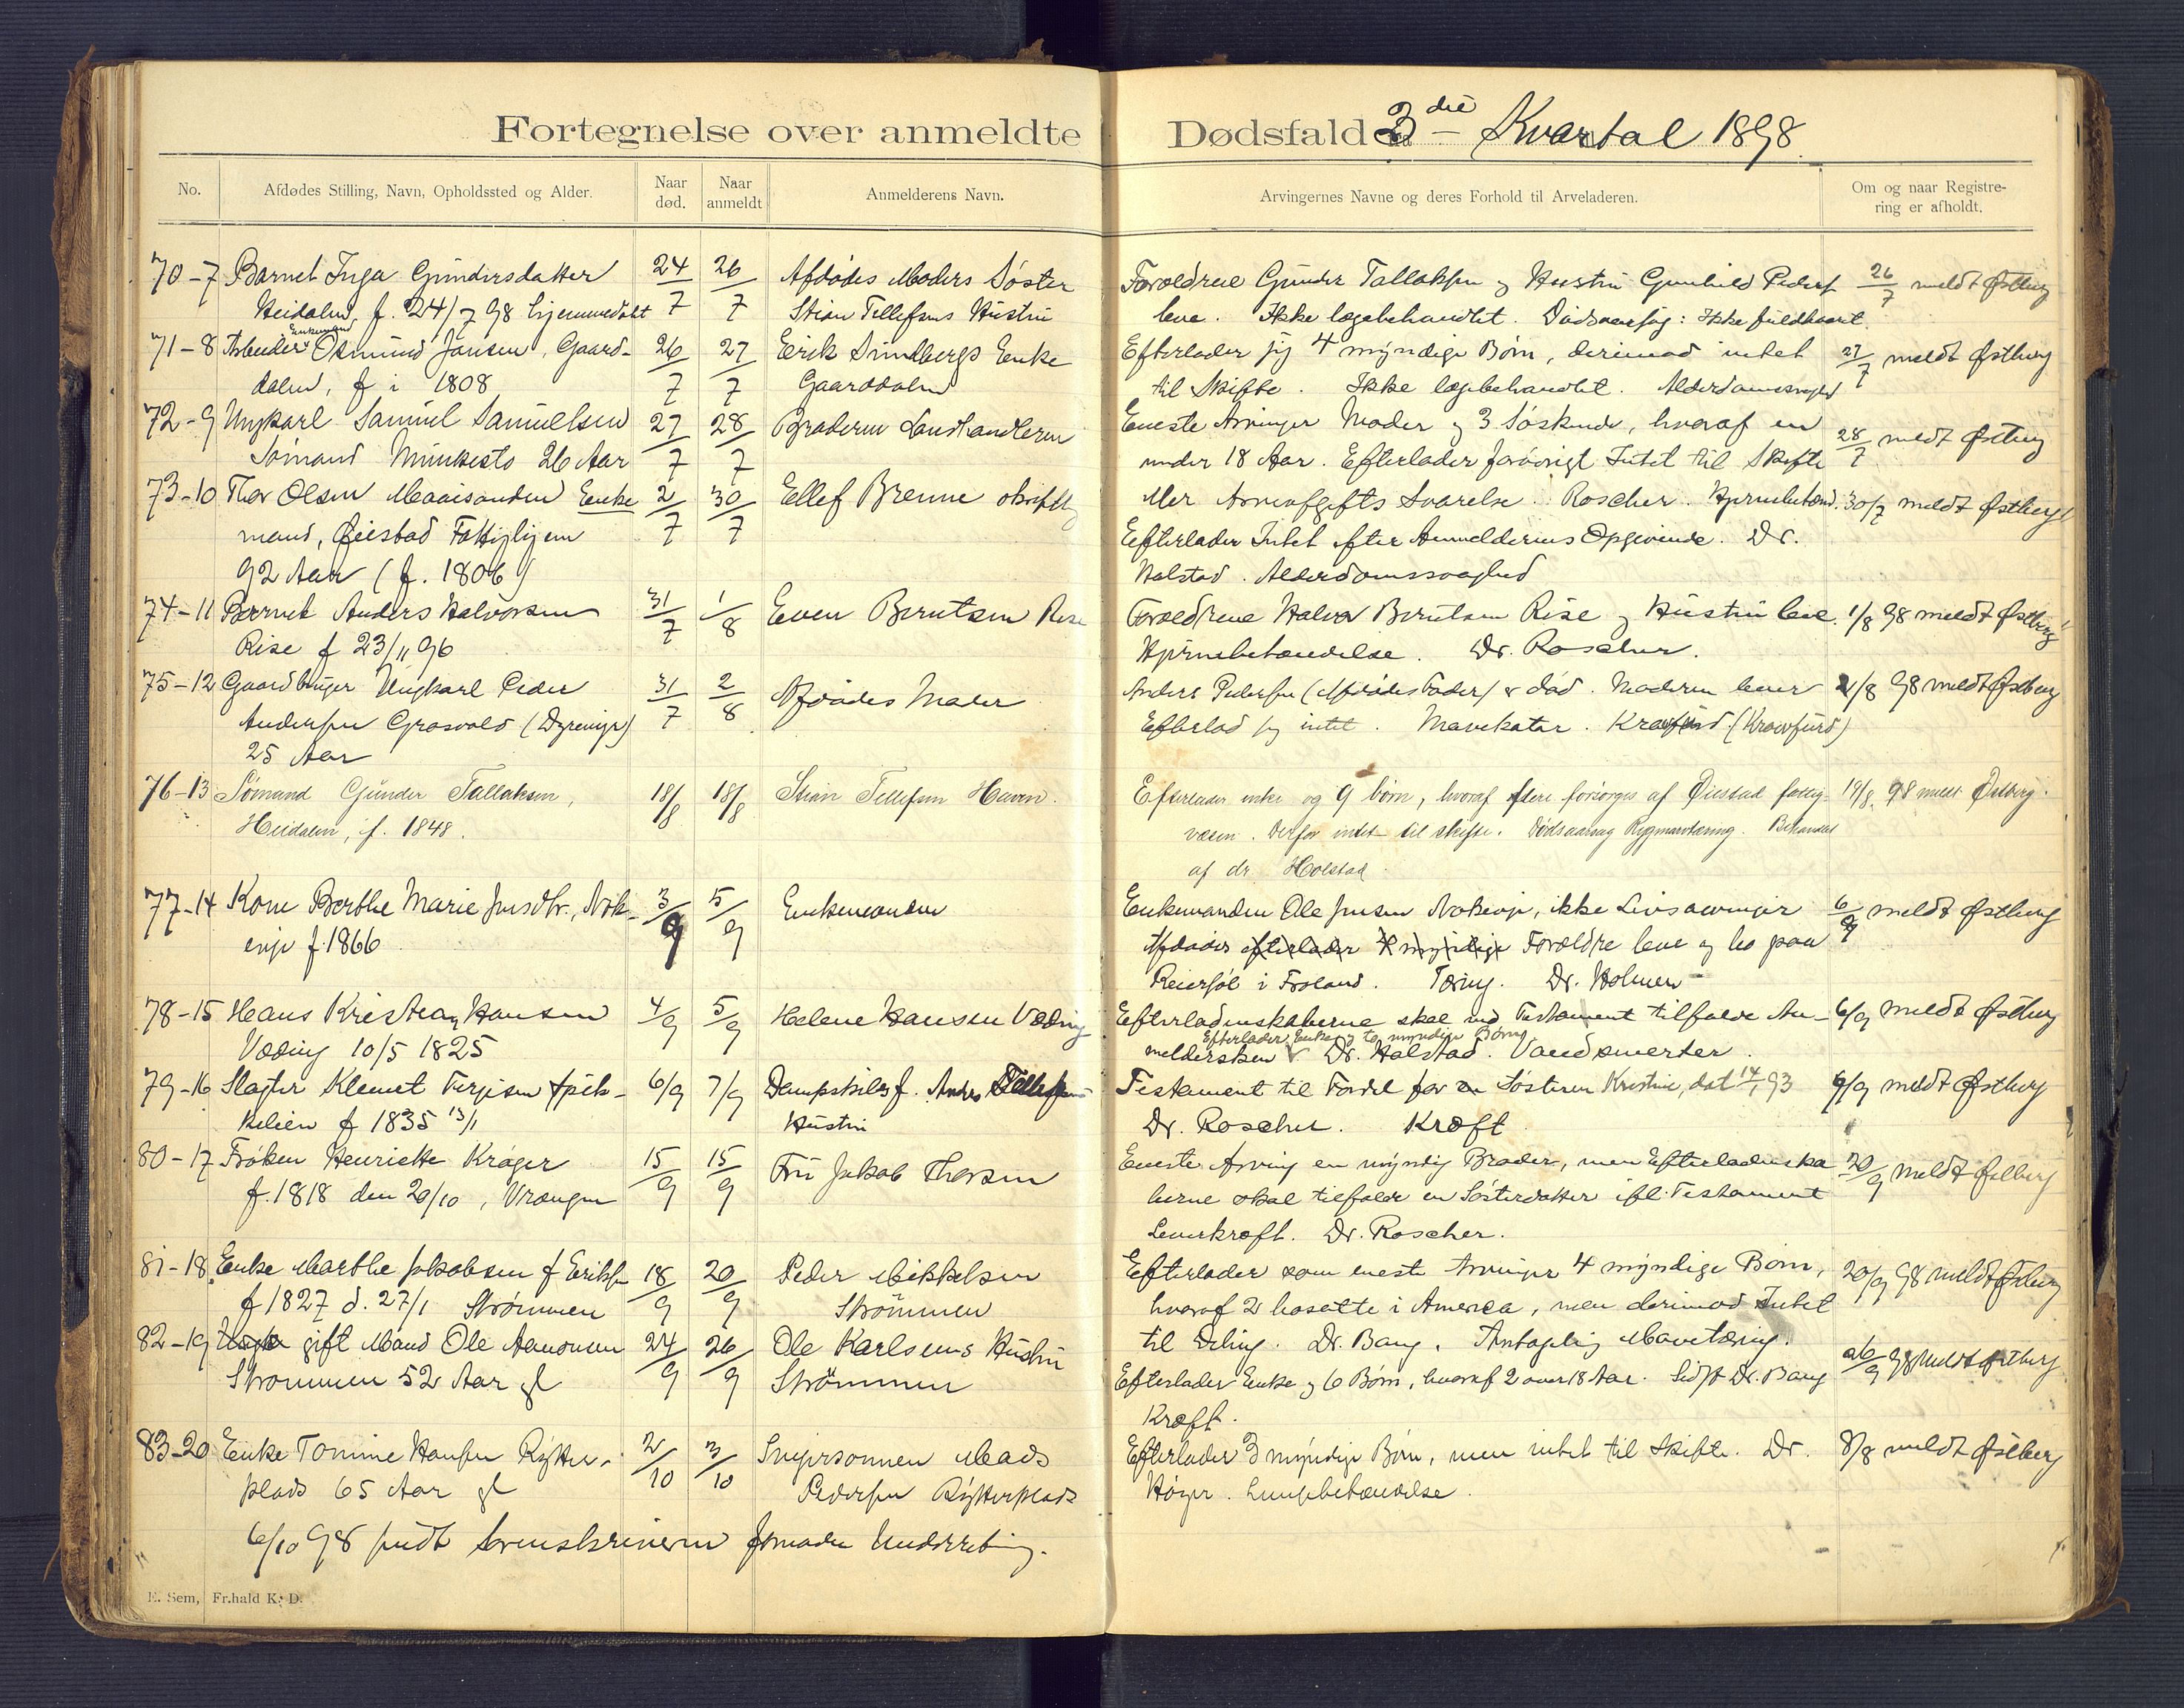 Fortegnelse over anmeldte Dødsfald 3die Kvartal 1898.
No. Afdødes Stilling, Navn, Opholdssted og Alder. Naar død. Naar anmeldt Anmelderens Navn. Arvingernes Navne og deres Forhold til Arveladeren. Om og naar Registrering er afholdt.
70-7 Barnet Inga Gundersdatter 24/7 26/7 Afdødes Moders Søster Forældrene Gunder Tallaksen og Hustru Gunhild Peders 26/7 meldt Østberg
Heidalen, f. 24/7 98 hjemmedøbt Stian Tellefsens Hustru leve. Ikke lægebehandlet. Dødsaarsag: Ikke fuldbaaret.
71-8 Arbeider Enkemand Osmund Jansen, Gaard- 26/7 27/7 Eerik Sundbergs Enke Efterlader sig 4 myndige Børn, derimod intet 27/7 meldt Østberg
dalen, f i 1808 Gaarddalen til Skifte. Ikke lægebehandlet. Alderdomssvaghed
72-9 Ungkarl Samuel Samuelsen 27/7 28/7 Broderen Landhandleren Eneste Arvinger Moder og 3 Søskende, hvoraf en 28/7 meldt Østberg
Sømand 26 Aar under 18 Aar. Efterlader forøvrigt Intet til Skifte
73-10 Thor Olsen Enke 2/7 30/7 Ellef Brenne eller Arveafgifts Svarelse. Roscher. Hjernebetænd. 30/7 meldt Østberg
mand, Øiestad Fattighjem Efterlader Intet efter Anmelderens Opgivende. Dr.
92 Aar (f. 1806) Halstad. Alderdomssvaghed
74-11 Barnet Anders Halvorsen 31/7 1/8 Even Berntsen Rise Forældrene Halvor Berntsen Rise og Hustru leve. 1/8 98 meldt Østberg
Rise f 23/11 96 Hjernebetændelse. Dr. Roscher.
75-12 Gaardbruger Ungkarl Peder 31/7 2/8 Afdødes Moder Anders Pedersen (Afdødes Fader) er død. Moderen lever 2/8 98 meldt Østberg
Andersen Græsvold (Dyrenge) Efterlod sig intet. Mavekatar. (Krawfurd)
25 Aar
76-13 Sømand Gunder Tallaksen, 18/8 18/8 Stian Tellefsen Haven. Efterlader enke og 9 børn, hvoraf flere forsørges af Øiestad fattig- 19/8 98 meldt Østberg.
Heidalen, f. 1848. væsen. Derfor intet til skifte. Dødsaarsag Rygmarvtæring. Behandlet
af dr. Holstad.
77-14 Kone Berthe Marie Jensdtr., Nok- 3/9 5/9 Enkemanden Enkemanden Ole Jensen Nokenje, ikke Livsarvinger 6/9 meldt Østberg
enje f. 1866 Afdødes efterlader 4 myndige Forældre leve og bo paa
Reiersøl i Froland. Tæring. Dr. Holmen
78-15 Hans Kristian Hansen 4/9 5/9 Helene Hansen Væding Efterladenskaberne skal ved Testament tilfalde An- 6/9 meldt Østberg
Væding 10/5 1825 meldersken Efterlader Enke og to myndige Børn Dr. Halstad. Vandsmerter.
79-16 Slagter Klemet Terjesen Spik- 6/9 7/9 Dampskibsf. Anders Tellefsens Testament til Fordel for en Søsteren Kristine, dat 14/1 93 9/9 meldt Østberg
kelien f 1835 13/1 Hustru Dr. Roscher. Kræft
80-17 Frøken Henriette Krøger 15/9 15/9 Fru Jakob Thorsen Eneste Arving en myndig Broder, men Efterladenska 20/9 meldt Østberg
f. 1818 den 20/10, Vrængen berne skal tilfalde en Søsterdatter ifl. Testament
Leverkræft. Dr. Roscher.
81-18 Enke Marthe Jakobsen f Eriks 18/9 20/9 Peder Mikkelsen Efterlader som eneste Arvinger 4 myndige Børn, 20/9 98 meldt Østberg
f 1827 d. 27/1 Strømmen Strømmen hvoraf 2 bosatte i America, men derimod Intet
til Deling. Dr. Bang. Antagelig Mavetæring.
82-19 gift Mand Ole Aanonsen 24/9 26/9 Ole Karlsens Hustru 26/9 98 meldt Østberg
Strømmen 52 Aar gl Strømmen Efterlader Enke og 6 Børn, hvoraf 2 over 18 Aar. Sidst Dr. Bang
Kræft.
83-20 Enke Tomine Hansen Rytter- 2/10 3/10 Svigersønnen Mads Efterlader 3 myndige Børn, men intet til Skifte. Dr. 8/8 meldt Østberg
plads 65 Aar gl Pedersen Rytterplads Høyer. Lungebetændelse.
6/10 98 sendt Sorenskriveren fornøden Underretning.
E. Sem, Fr.hald K. D.